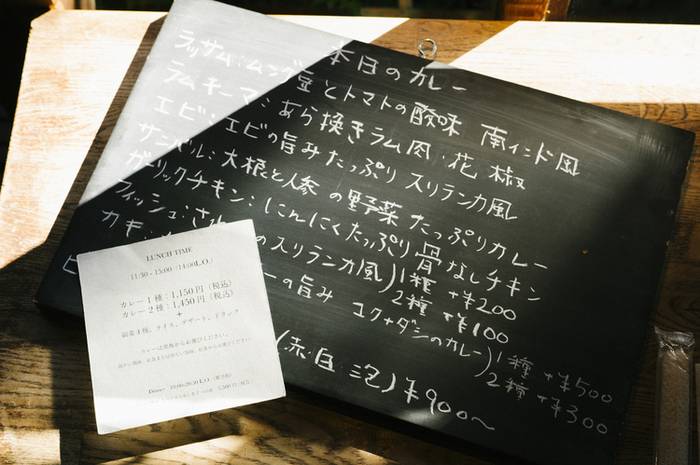 本日のカレー
ラッサム:ムング豆とトマトの酸味 南インド風
ラムキーマ:あら挽きラム肉・花椒
エビ:エビの旨みたっぷり スリランカ風
サンバル:大根と人参の野菜たっぷりカレー
ガーリックチキン:にんにくたっぷり骨なしチキン
フィッシュ:さ のスリランカ風) 1種 +¥200
2種 +¥100
カキ: ーの旨み コク+ダシのカレー) 1種 +¥500
2種 +¥300
(赤・白・泡) ¥900〜
LUNCH TIME
11:30 - 15:00 (14:00L.O.)
カレー1種:1,150円(税込)
カレー2種:1,450円(税込)
+
副菜4種、ライス、デザート、ドリンク
カレーは黒板からお選びください。